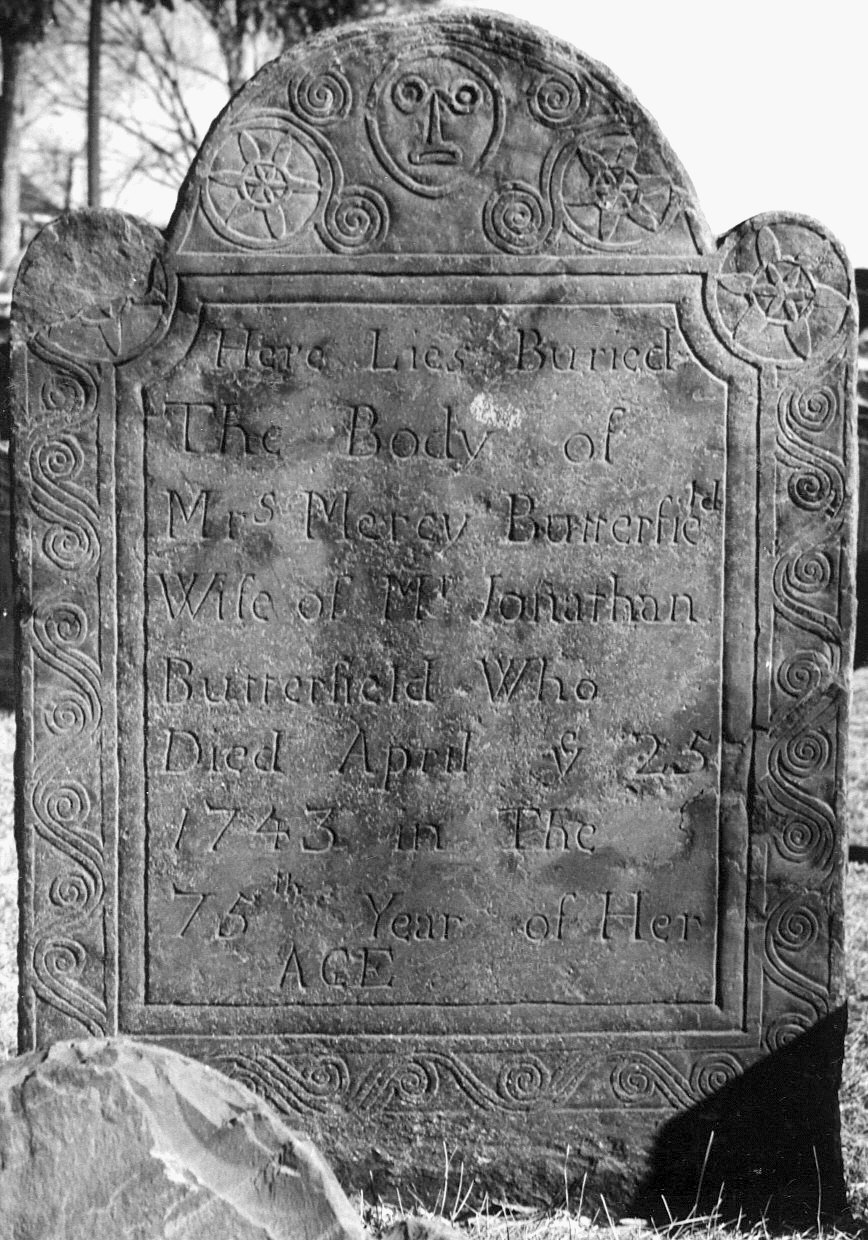 Here Lies Buried
The Body of
Mrs Mercy Butterfield
Wife of Mr Jonathan
Butterfield Who
Died April ye 25
1743 in The
75th Year of Her
AGE